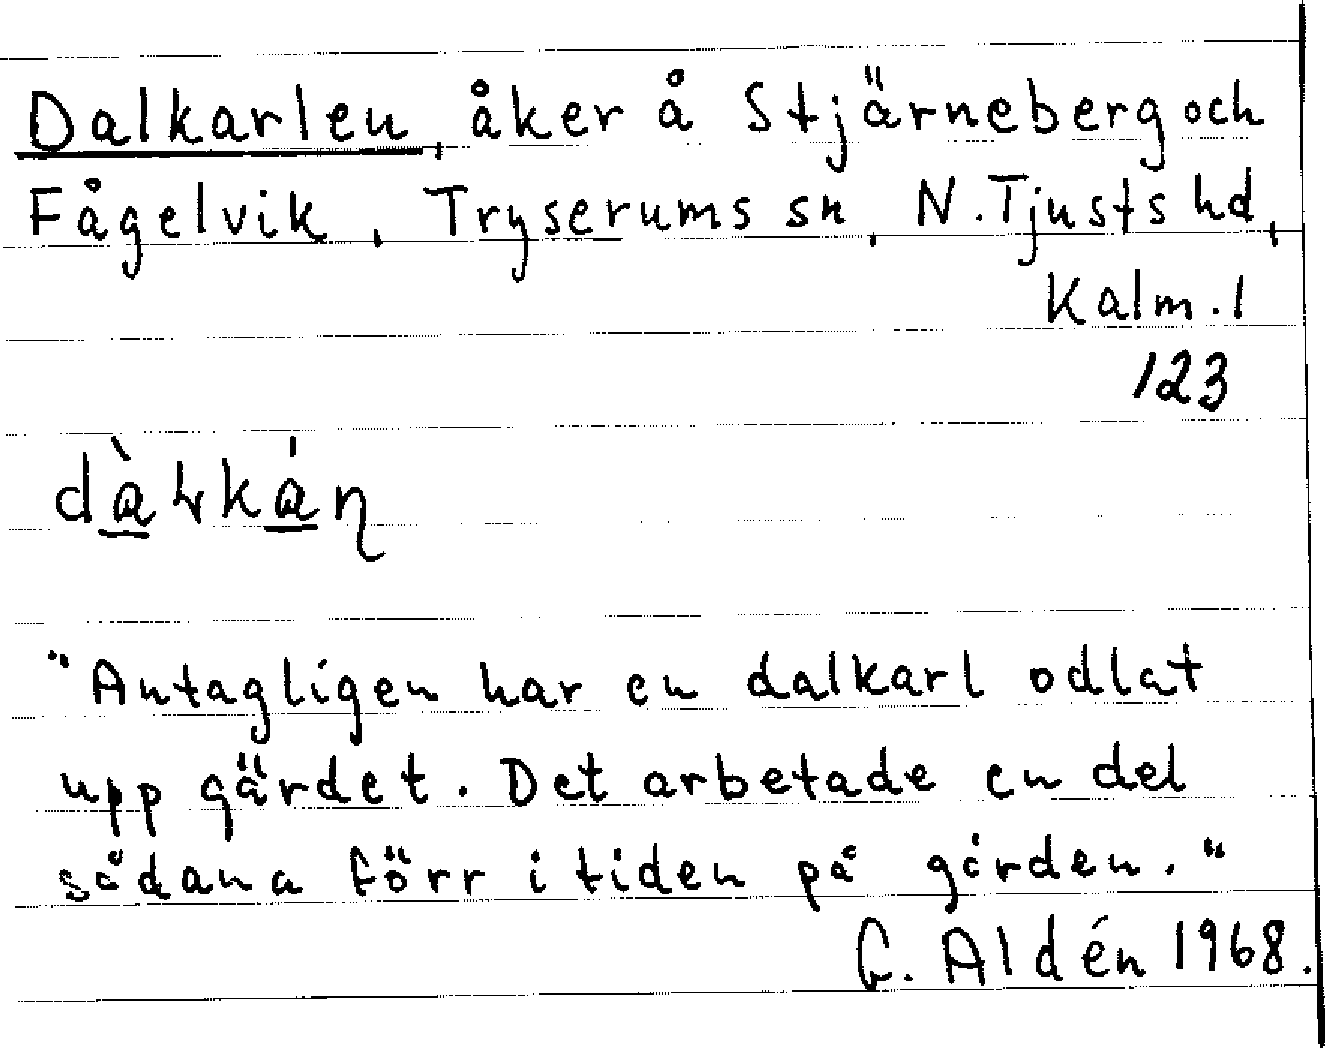 Dalkarlen, åker å Stjärneberg och
Fågelvik, Tryserums sn, N. Tjusts hd,
Kalm. l
123
"Antagligen har en dalkarl odlat
upp gärdet. Det arbetade en del
sådana förr i tiden på gården."
G. Aldén 1968.